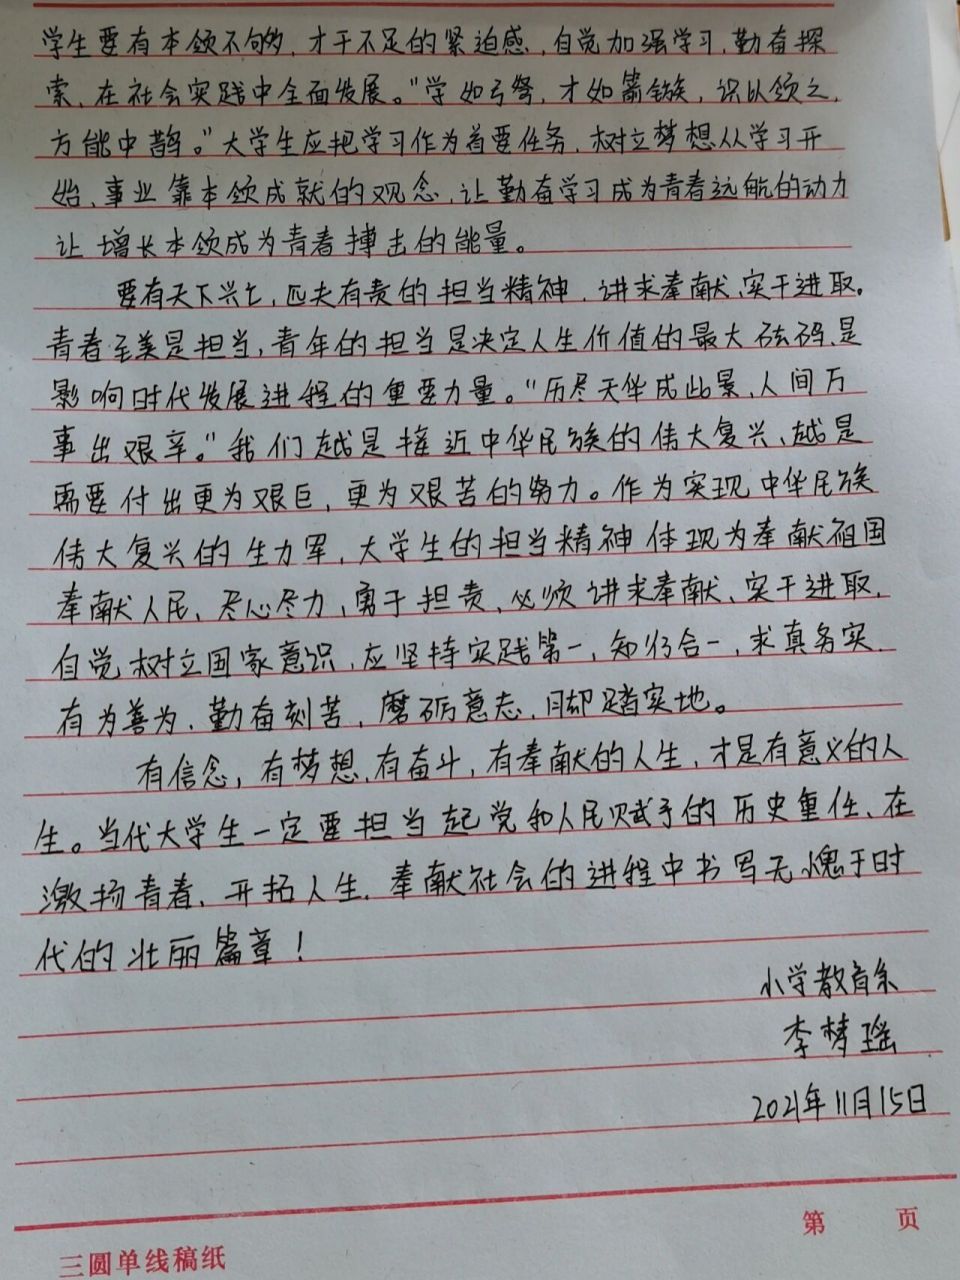 学生要有本领不够，才干不足的紧迫感，自觉加强学习，勤奋探
索，在社会实践中全面发展。"学如弓弩，才如箭镞，识以领之，
方能中鹄。"大学生应把学习作为首要任务，树立梦想从学习开
始、事业靠本领成就的观念，让勤奋学习成为青春远航的动力
让增长本领成为青春搏击的能量。
要有天下兴亡，匹夫有责的担当精神，讲求奉献、实干进取。
青春至美是担当，青年的担当是决定人生价值的最大砝码、是
影响时代发展进程的重要力量。"历尽天华成此景，人间万
事出艰辛。"我们越是接近中华民族的伟大复兴、越是
需要付出更为艰巨，更为艰苦的努力。作为实现中华民族
伟大复兴的生力军，大学生的担当精神体现为奉献祖国
奉献人民、尽心尽力、勇于担责，必须讲求奉献、实干进取，
自觉树立国家意识，应坚持实践第一，知行合一，求真务实，
有为善为，勤奋刻苦，磨砺意志，脚踏实地。
有信念，有梦想，有奋斗，有奉献的人生，才是有意义的人
生。当代大学生一定要担当起党和人民赋予的历史重任、在
激扬青春、开拓人生、奉献社会的进程中书写无愧于时
代的壮丽篇章！
小学教育系
李梦瑶
2021年11月15日
第 页
三圆单线稿纸